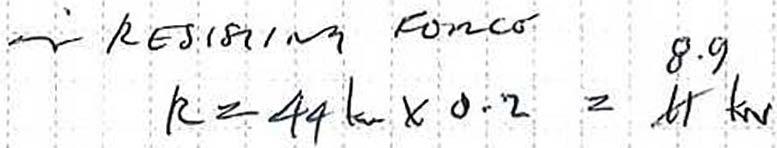 ~ RESISTING FORCE
R = 44 kN x 0.2 = 8.9 kN